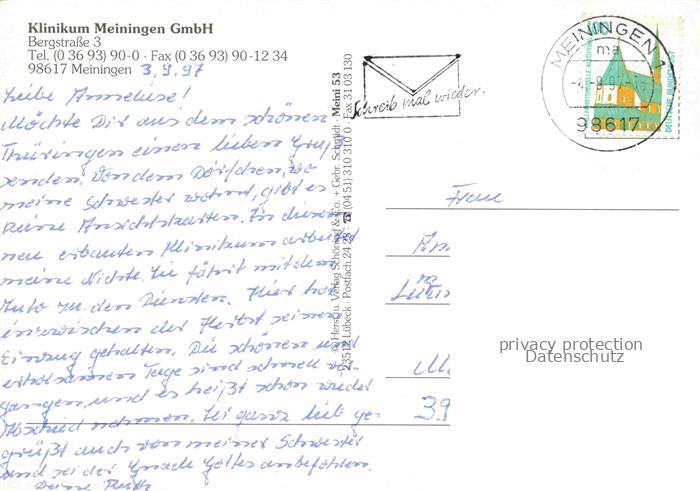 Klinikum Meiningen GmbH
Bergstraße 3
Tel. (0 36 93) 90-0 · Fax (0 36 93) 90-12 34
98617 Meiningen 3.9.97
Liebe Anneliese!
Möchte Dir aus dem schönen
Thüringen einen lieben Gruß
senden. Von dem Dörfchen, wo
meine Schwester wohnt, gibt es
keine Ansichtskarten. In diesem
neu erbauten Klinikum arbeitet
meine Nichte. Sie fährt mit dem
Auto zu den Diensten. Hier hat
inzwischen der Herbst seinen
Einzug gehalten. Die schönen und
erholsamen Tage sind schnell ver-
gangen, und es heißt schon wieder
Abschied nehmen. Sei ganz lieb ge-
grüßt auch von meiner Schwester
und sei der Gnade Gottes anbefohlen.
Deine Ruth
© Herst. u. Verlag Schöning & Co. + Gebr. Schmidt · Meini 53
23512 Lübeck · Postfach 24 23 · ☎ (04 51) 310 310 0 · Fax 31 03 130
Schreib mal wieder.
MEININGEN 1
ma
98617
100
DEUTSCHE BUNDESPOST
Frau
An
M
39
privacy protection
Datenschutz